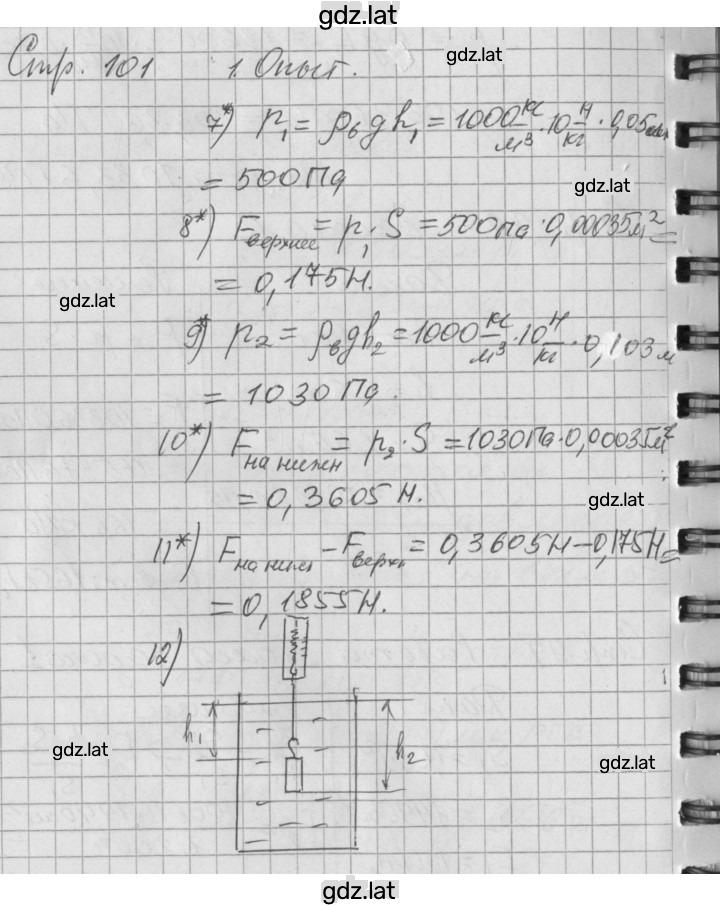 gdz.lat
Стр. 101 1. Опыт.
gdz.lat
7*) p₁ = ρв g h₁ = 1000 кг/м³ · 10 Н/кг · 0,05 м
= 500 Па
gdz.lat
8*) Fверхнее = p₁ · S = 500 Па · 0,00035 м² =
= 0,175 Н.
gdz.lat
9*) p₂ = ρв g h₂ = 1000 кг/м³ · 10 Н/кг · 0,103 м
= 1030 Па.
10*) Fна нижн = p₂ · S = 1030 Па · 0,00035 м²
= 0,3605 Н.
gdz.lat
11*) Fна нижн – Fверхн = 0,3605 Н – 0,175 Н =
= 0,1855 Н.
12)
h₁
h₂
gdz.lat
gdz.lat
gdz.lat